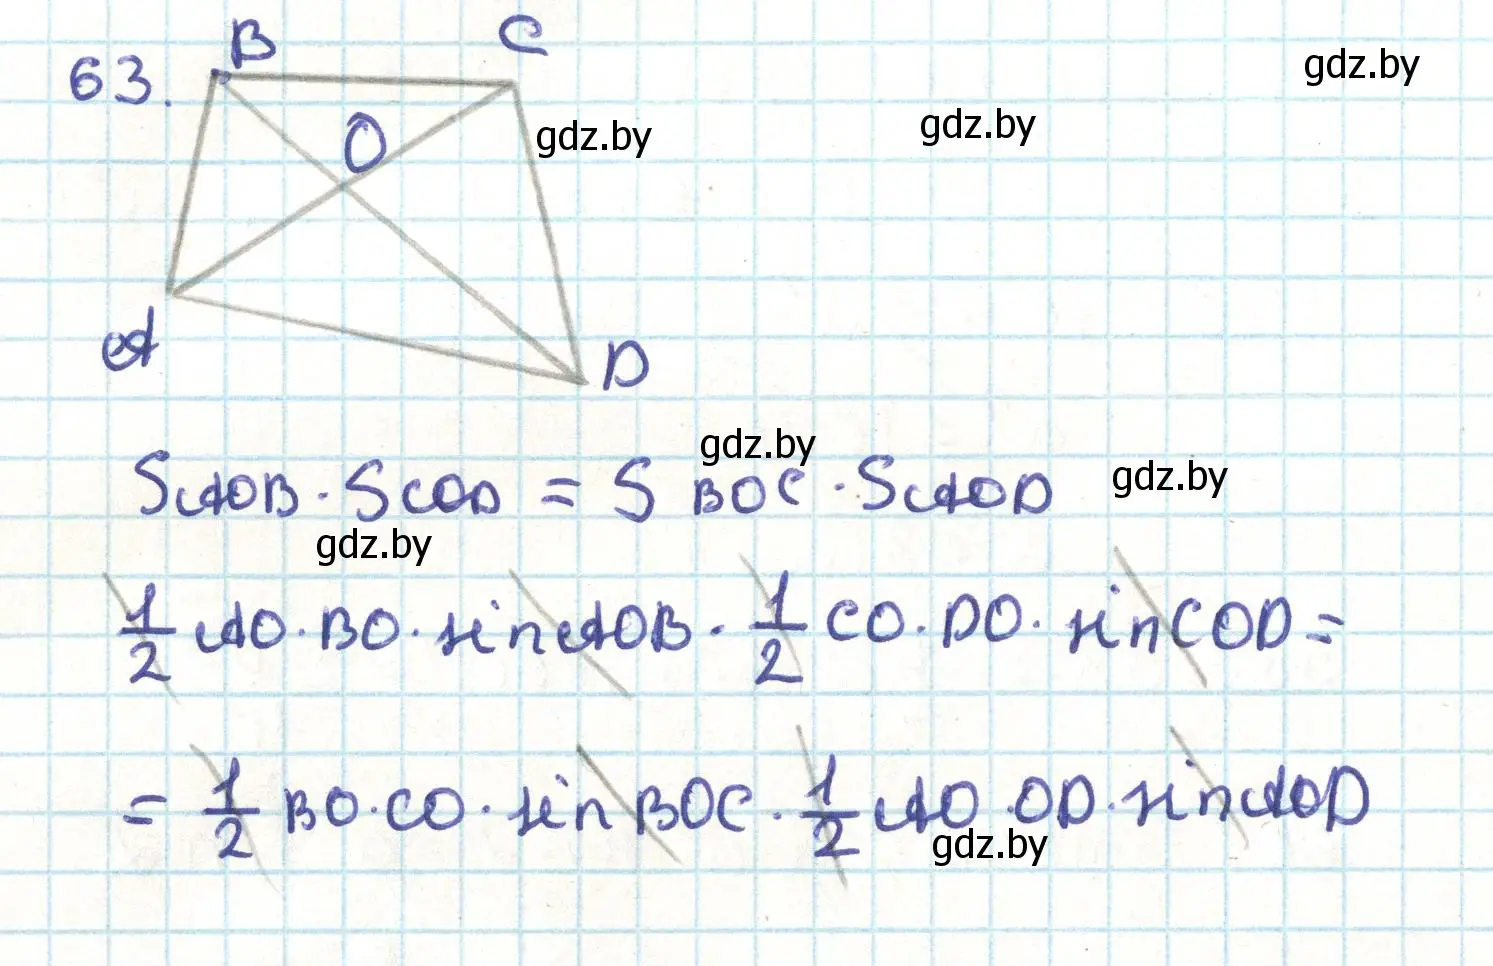 63.
B
C
O
A
D
gdz.by
gdz.by
gdz.by
gdz.by
S AOB · S COD = S BOC · S AOD
gdz.by
gdz.by
1/2 AO · BO · sin AOB · 1/2 CO · DO · sin COD =
= 1/2 BO · CO · sin BOC · 1/2 AO · OD · sin AOD
gdz.by